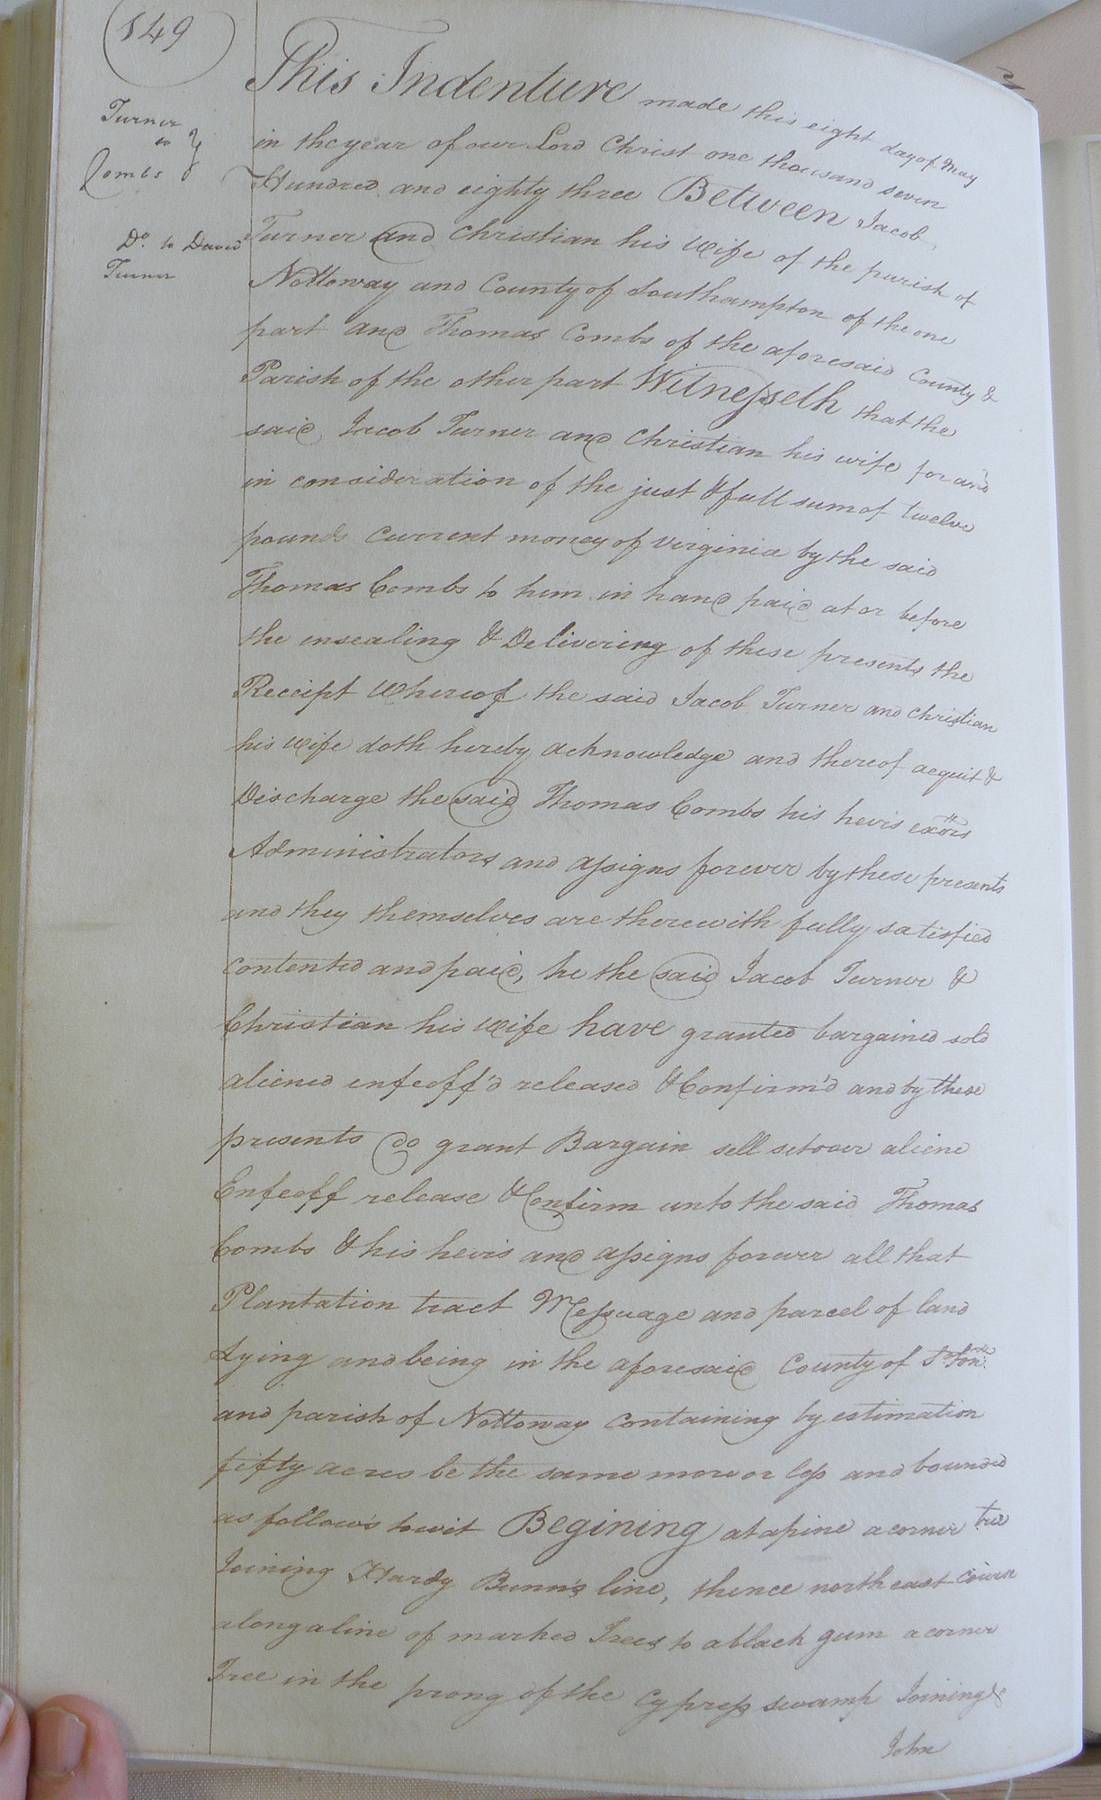 149
Turner
to
Combs
Do. to David
Turner
This Indenture made this eight day of May
in the year of our Lord Christ one thousand seven
Hundred and eighty three Between Jacob
Turner and Christian his wife of the parish of
Nottoway and County of Southampton of the one
part and Thomas Combs of the aforesaid County &
Parish of the other part Witnesseth that the
said Jacob Turner and Christian his wife for and
in consideration of the just & full sum of twelve
pounds current money of virginia by the said
Thomas Combs to him in hand paid at or before
the ensealing & Delivering of these presents the
Receipt Whereof the said Jacob Turner and Christian
his wife doth hereby acknowledge and thereof acquit &
Discharge the said Thomas Combs his heirs exors
Administrators and assigns forever by these presents
and they themselves are therewith fully satisfied
contented and paid, he the said Jacob Turner &
Christian his wife have granted bargained sold
aliened enfeoff'd released & Confirm'd and by these
presents do grant Bargain sell setover aliene
Enfeoff release & Confirm unto the said Thomas
Combs & his heirs and assigns forever all that
Plantation tract Messuage and parcel of land
Lying and being in the aforesaid County of
and parish of Nottoway containing by estimation
fifty acres be the same more or less and bounded
as follows towit Begining at a pine a corner tree
Joining Hardy Bunn's line, thence north east course
along a line of marked Trees to a black gum a corner
Tree in the prong of the Cypress swamp Joining
John